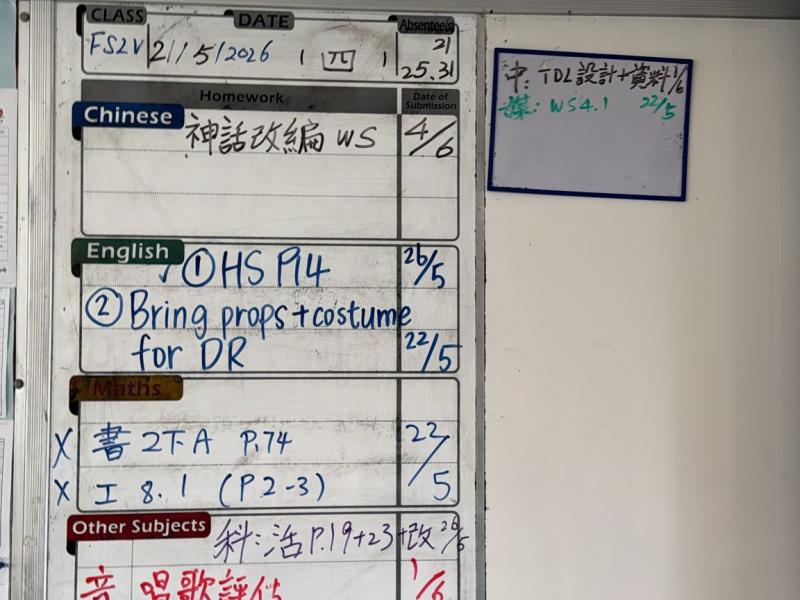 CLASS DATE Absentee(s)
FS2V 21/5/2026 (四) 21
25.31
Homework Date of Submission
Chinese
神話改編 WS 4/6
English
① HS P14 26/5
② Bring props + costume
for DR 22/5
Maths
X 書 2下A P.74 22/5
X 工 8.1 (P2-3)
Other Subjects
科:活P.19+23+改 26/5
音 唱歌評估 1/6
中: TDL設計+資料 1/6
WS4.1 22/5